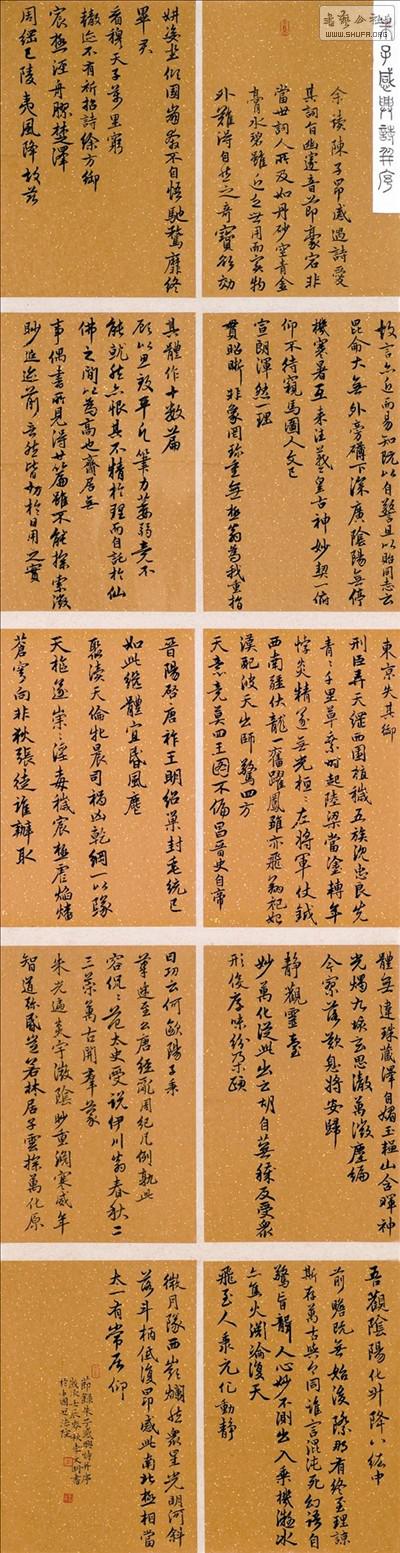 朱子感興詩並序
余讀陳子昂感遇詩愛
其詞旨幽邃音節豪宕非
當世詞人所及如丹砂空青金
膏水碧雖近乏世用而實物
外難得自然之奇寶欲効
妍姿坐傾國崩奔不自悟馳騖靡終
畢君
看穆天子萬里窮
轍迹不有祈招詩徐方御
宸極涇舟膠楚澤
周綱已陵夷風降故
故言亦近而易知既以自警且以貽同志云
昆侖大無外旁礴下深廣陰陽無停
機寒暑互來往羲皇古神妙契一俯
仰不待窺馬圖人文已
宣朗渾然一理
貫昭晰非象罔珍重無極翁為我重指
其體作十數篇
顧以思致平凡筆力萎弱竟不
能就然亦恨其不精於理而自託於仙
佛之間以為高也齋居無
事偶書所見得廿篇雖不能探索微
眇追迹前言然皆切於日用之實
東京失其御
刑臣弄天綱西園植穢五族沈忠良先
青青千里草乘時起陸梁當塗轉年
悖炎精遂無光桓桓左將軍仗鉞
西南疆伏龍一奮躍鳳雛亦飛翔祀
漢配彼天出師驚四方
天意竟莫回王圖不偏昌晉史自帝
晉陽啟唐祚王明紹巢封垂統已
如此繼體宜昏風麀
聚瀆天倫牝晨司禍凶乾綱一以隳
天樞遂崇崇淫毒穢宸極虐焰燔
蒼穹向非狄張徒誰辦取
體無違珠藏澤自媚玉韞山含暉神
光燭九垓玄思徹萬微塵編
今寥落歎息將安歸
靜觀靈臺
妙萬化從此出云胡自蕪穢反受衆
形役厚味紛朵頤
日功云何歐陽子秉
筆迷至公唐經亂周紀凡例孰此
容侃侃范太史受説伊川翁春秋二
三策萬古開羣蒙
朱光遍炎宇微陰眇重淵寒威年
智道彌敦豈若林居子探萬化原
吾觀陰陽化升降八紘中
前瞻既無始後際那有終至理諒
斯存萬古與今同誰言混沌死幻語自
驚盲聾人心妙不測出入乘機凝冰
亦焦火淵淪復天
飛至人秉元化動靜
微月隳西嶺爛然衆星光明河斜
落斗柄低復昂感此南北極相當
太一有常居仰
節錄朱子感興詩并序